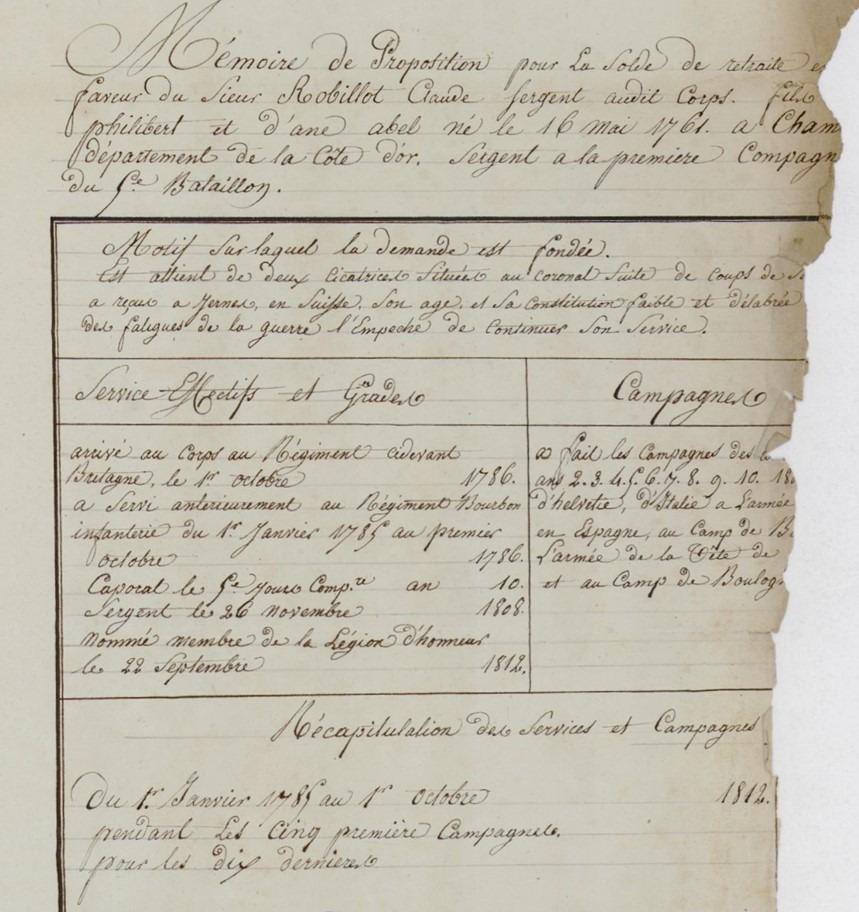 Mémoire de Proposition pour La Solde de retraite e
faveur du Sieur Robillot Claude Sergent audit Corps. fils
philibert et d'ane abel né le 16 mai 1761. a Cham
département de la Côte d'or. Sergent a la premiere Compagn
du 5.e Bataillon.
Motif Sur laquel la demande est fondée.
Est attient de deux Cicatrices Situées au coronal Suite de Coups de
a reçues a Jernes, en Suisse, Son age, et Sa Constitution faible et délabrée
des fatigues de la guerre l'Empeche de Continuer Son Service.
Service Effectifs et Grades
Campagnes
arrivé au Corps au Régiment cidevant
Bretagne, le 1er octobre 1786.
a Servi anterieurement au Régiment Bourbon
infanterie du 1er Janvier 1785 au premier
octobre 1786.
Caporal le 5.e Jours Comp.re an 10.
Sergent le 26 Novembre 1808.
Nommé membre de la Légion d'honneur
le 22 Septembre 1812.
a fait les Campagnes des
ans 2. 3. 4. 5. 6. 7. 8. 9. 10. 18
d'helvetie, d'Italie a L'armée
en Espagne, au Camp de B
L'armée de la Tête de
et au Camp de Boulog
Récapitulation des Services et Campagnes
Du 1er Janvier 1785 au 1er Octobre 1812.
pendant Les Cinq première Campagnes.
pour les dix dernieres